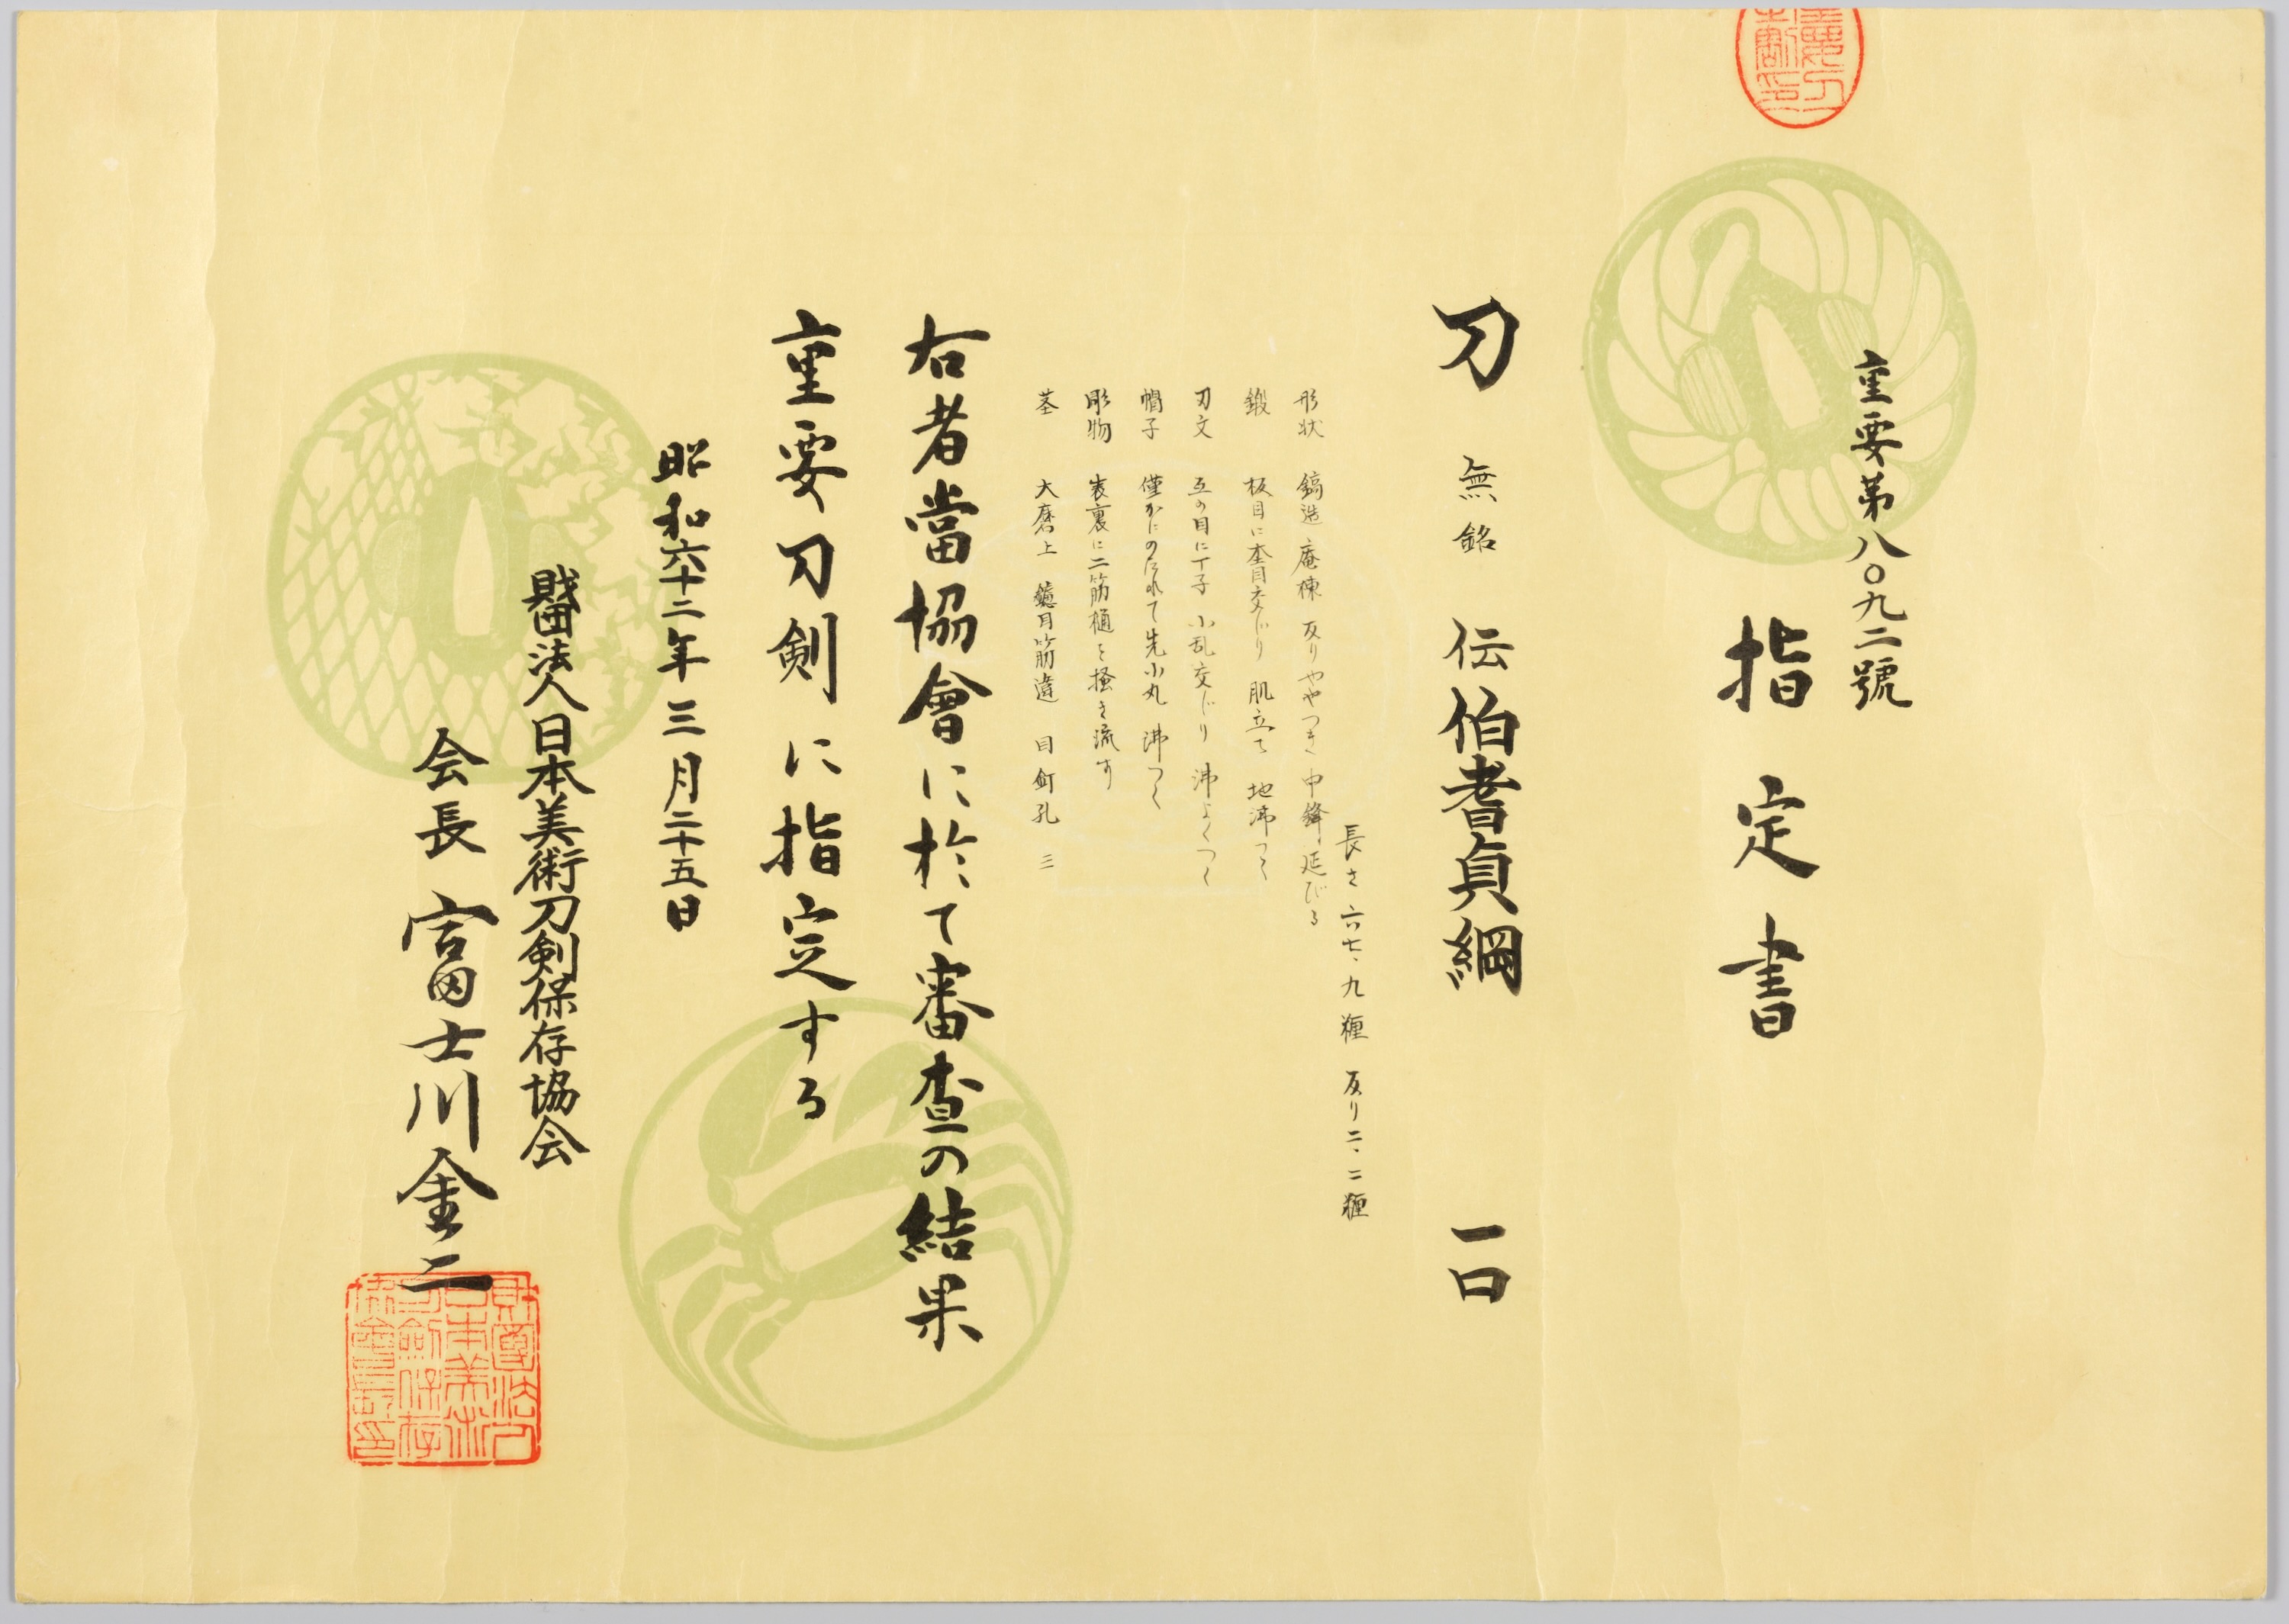 重要第八〇九二號
指定書
刀 無銘 伝伯耆貞綱 一口
長さ 六七、九糎 反り二、二糎
形状 鎬造 庵棟 反りややつき 中鋒延びる
鍛 板目に杢目交じり 肌立ち 地沸つく
刃文 互の目に丁子 小乱交じり 沸よくつく
帽子 僅かにのたれて先小丸 沸つく
彫物 表裏に二筋樋を掻き流す
茎 大磨上 鑢目筋違 目釘孔 三
右者當協會に於て審査の結果
重要刀剣に指定する
昭和六十二年三月二十五日
財団法人日本美術刀剣保存協会
会長 富士川金二